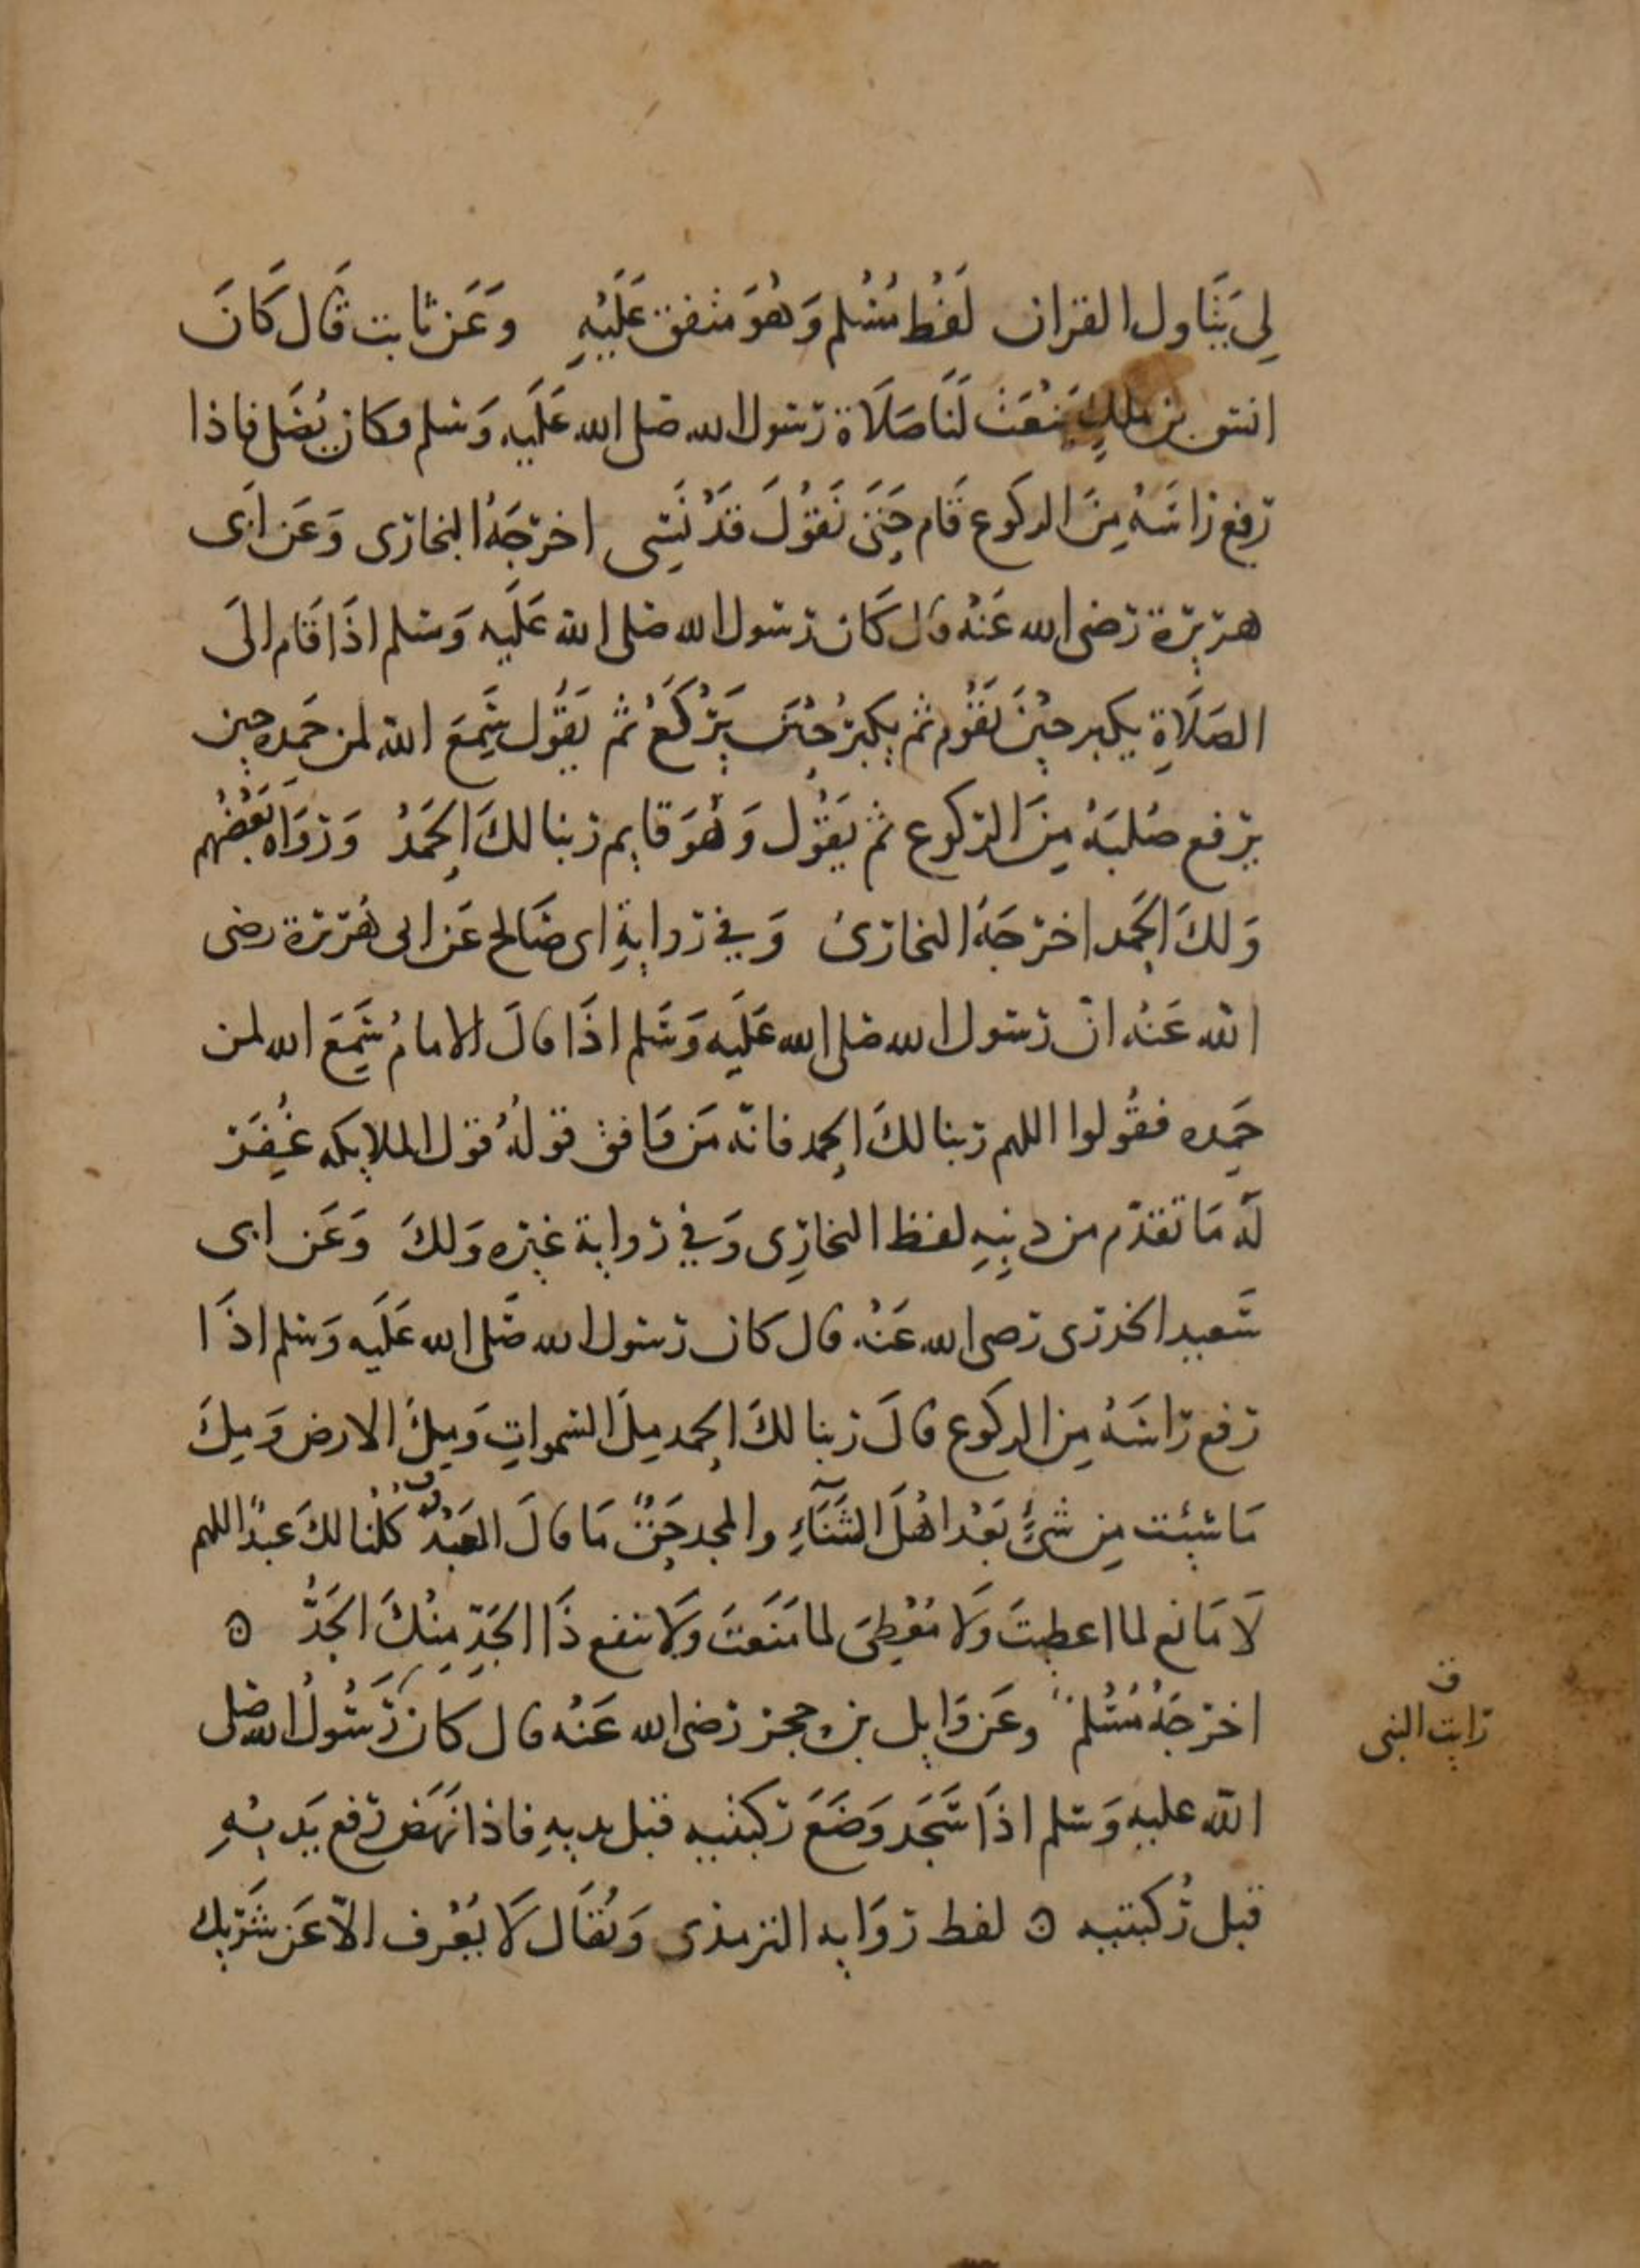 لِى يَتَاول القران لَفْظ مُسْلم وَهُوَ متفق عَلَيْهِ وَعَن ثابت قَال كَانَ
انس بن ملكٍ يَنْعَت لَنَا صَلَاة رسول الله صلى الله عَلَيه وَسلم وكان يُصَلى فاذا
رفع رَاسَهُ مِنَ الركوع قَام حَتَى نَقُوْلَ قَدْ نَسِى اخرجَهُ البخارى وَعَن ابَى
هريرة رضى الله عَنْهُ قال كَان رسول الله صلى الله عَلَيه وَسلم اذَا قَام الَى
الصَلَاةِ يكبر حِيْنَ يَقُوْم ثم يكبرُ حِيْنَ يَرْكَعُ ثم يَقُول سَمِعَ الله لمن حَمِدَه حِين
يرفع صُلبَهُ مِنَ الركوع ثم يَقُوْل وَهُوَ قايم ربنا لكَ الحَمدُ وَرَوَاه بَعْضُهم
وَلكَ الحَمد اخرجَهُ البخارىُ وَفي روايةِ ابى صَالح عَن ابى هُريرة رضى
الله عَنهُ انّ رسول الله صلى الله عَلَيه وَسَلم اذَا قالَ الامامُ سَمِعَ الله لمن
حَمِده فقُولوا اللهم ربنا لكَ الحمد فانّه مَن وَافق قولهُ قول الملايكه غُفِرَ
لَه مَا تقدّم من ذنبِهِ لفظ البخارِى وَفي رواية غيره وَلكَ وَعَن ابى
سَعيد الخدرى رضى الله عَنْه قال كان رسول الله صَلى الله عَلَيه وَسلم اذَا
رفع رَاسَهُ مِن الركوع قالَ ربنا لكَ الحمد مِلَ السموَاتِ وَمِلَ الارض وَمِلَ
مَا شيئت مِن شَئٍ بَعْدُ اهْلَ الثَنَآءِ والمجد حَقٌ مَا قالَ العَبْدُ كُلُنا لكَ عبدٌ اللهم
لَا مَانع لما اعطيتَ وَلَا مُعْطِىَ لما مَنَعَتَ وَلَا ينفع ذَا الجَدِّ مِنْكَ الجَدُّ ه
اخرجَهُ مُسْلم وعَن وَايل بن حجر رضى الله عَنْهُ قال كان رَسُولُ الله صلى
الله عليه وَسلم اذَا سَجَد وَضَعَ ركبتيه قبل يديهِ فاذا نهَض رفع يَديْهِ
قبل رُكبتيه ه لفظ رِوَايه الترمذى وَيُقَال لَا يُعْرف الّا عَن شَرِيك
ق
رايت النبى